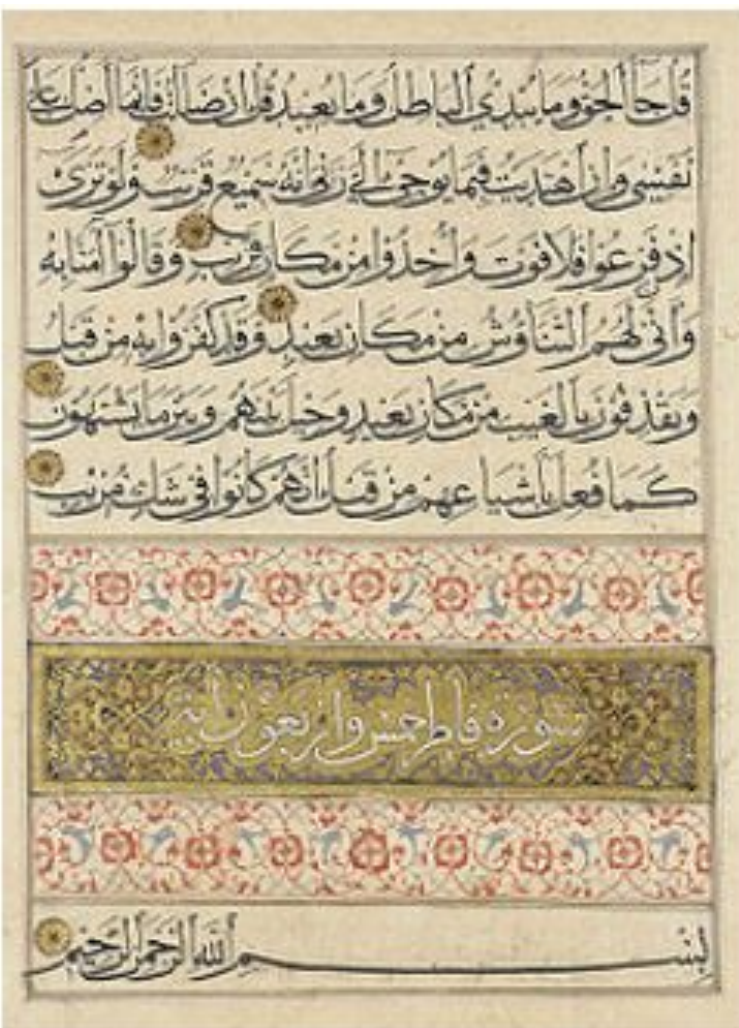 قُلْ جَاءَ الْحَقُّ وَمَا يُبْدِئُ الْبَاطِلُ وَمَا يُعِيدُ قُلْ إِنْ ضَلَلْتُ فَإِنَّمَا أَضِلُّ عَلَى
نَفْسِي وَإِنِ اهْتَدَيْتُ فَبِمَا يُوحِي إِلَيَّ رَبِّي إِنَّهُ سَمِيعٌ قَرِيبٌ وَلَوْ تَرَى
إِذْ فَزِعُوا فَلَا فَوْتَ وَأُخِذُوا مِنْ مَكَانٍ قَرِيبٍ وَقَالُوا آمَنَّا بِهِ
وَأَنَّى لَهُمُ التَّنَاوُشُ مِنْ مَكَانٍ بَعِيدٍ وَقَدْ كَفَرُوا بِهِ مِنْ قَبْلُ
وَيَقْذِفُونَ بِالْغَيْبِ مِنْ مَكَانٍ بَعِيدٍ وَحِيلَ بَيْنَهُمْ وَبَيْنَ مَا يَشْتَهُونَ
كَمَا فُعِلَ بِأَشْيَاعِهِمْ مِنْ قَبْلُ إِنَّهُمْ كَانُوا فِي شَكٍّ مُرِيبٍ
سورة فاطر خمس واربعون اية
بِسْمِ اللَّهِ الرَّحْمَنِ الرَّحِيمِ